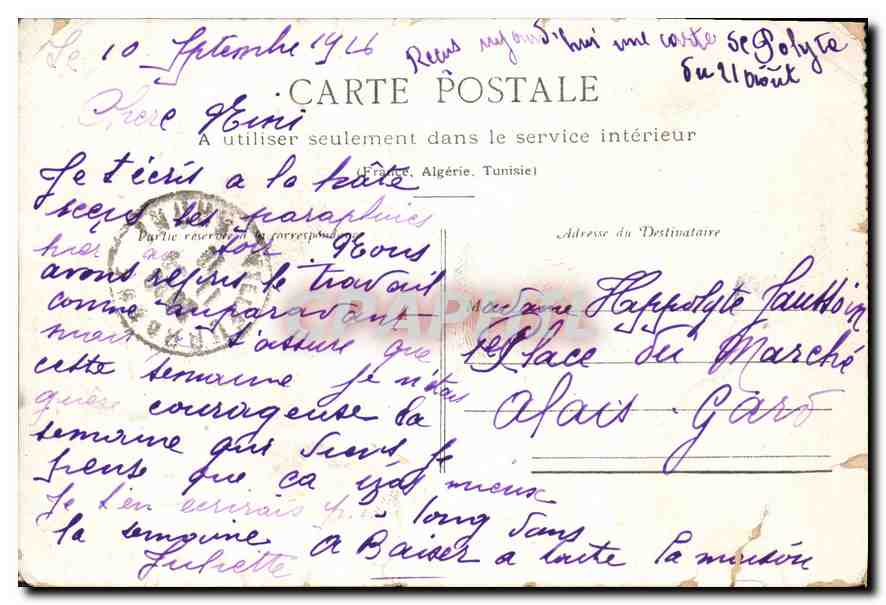 Le 10 Septembre 1916
Reçus aujourd'hui une carte de Polyte
du 21 Août
CARTE POSTALE
Chere Mimi
A utiliser seulement dans le service intérieur
(France, Algérie, Tunisie)
Je t'écris a la hâte
reçus les parapluies
Partie réservée à la correspondance
hier au soir. Nous
avons repris le travail
comme auparavant
mais t'assure que
cette semaine je n'étais
guère courageuse la
semaine qui viens je
pense que ça iras mieux
Je t'en ecrirais plus long dans
la semaine a Baiser a toute la maison
Juliette
Adresse du Destinataire
Madame Hyppolyte Jaussoin
1 Place du Marché
Alais - Gard
CPAPHIL